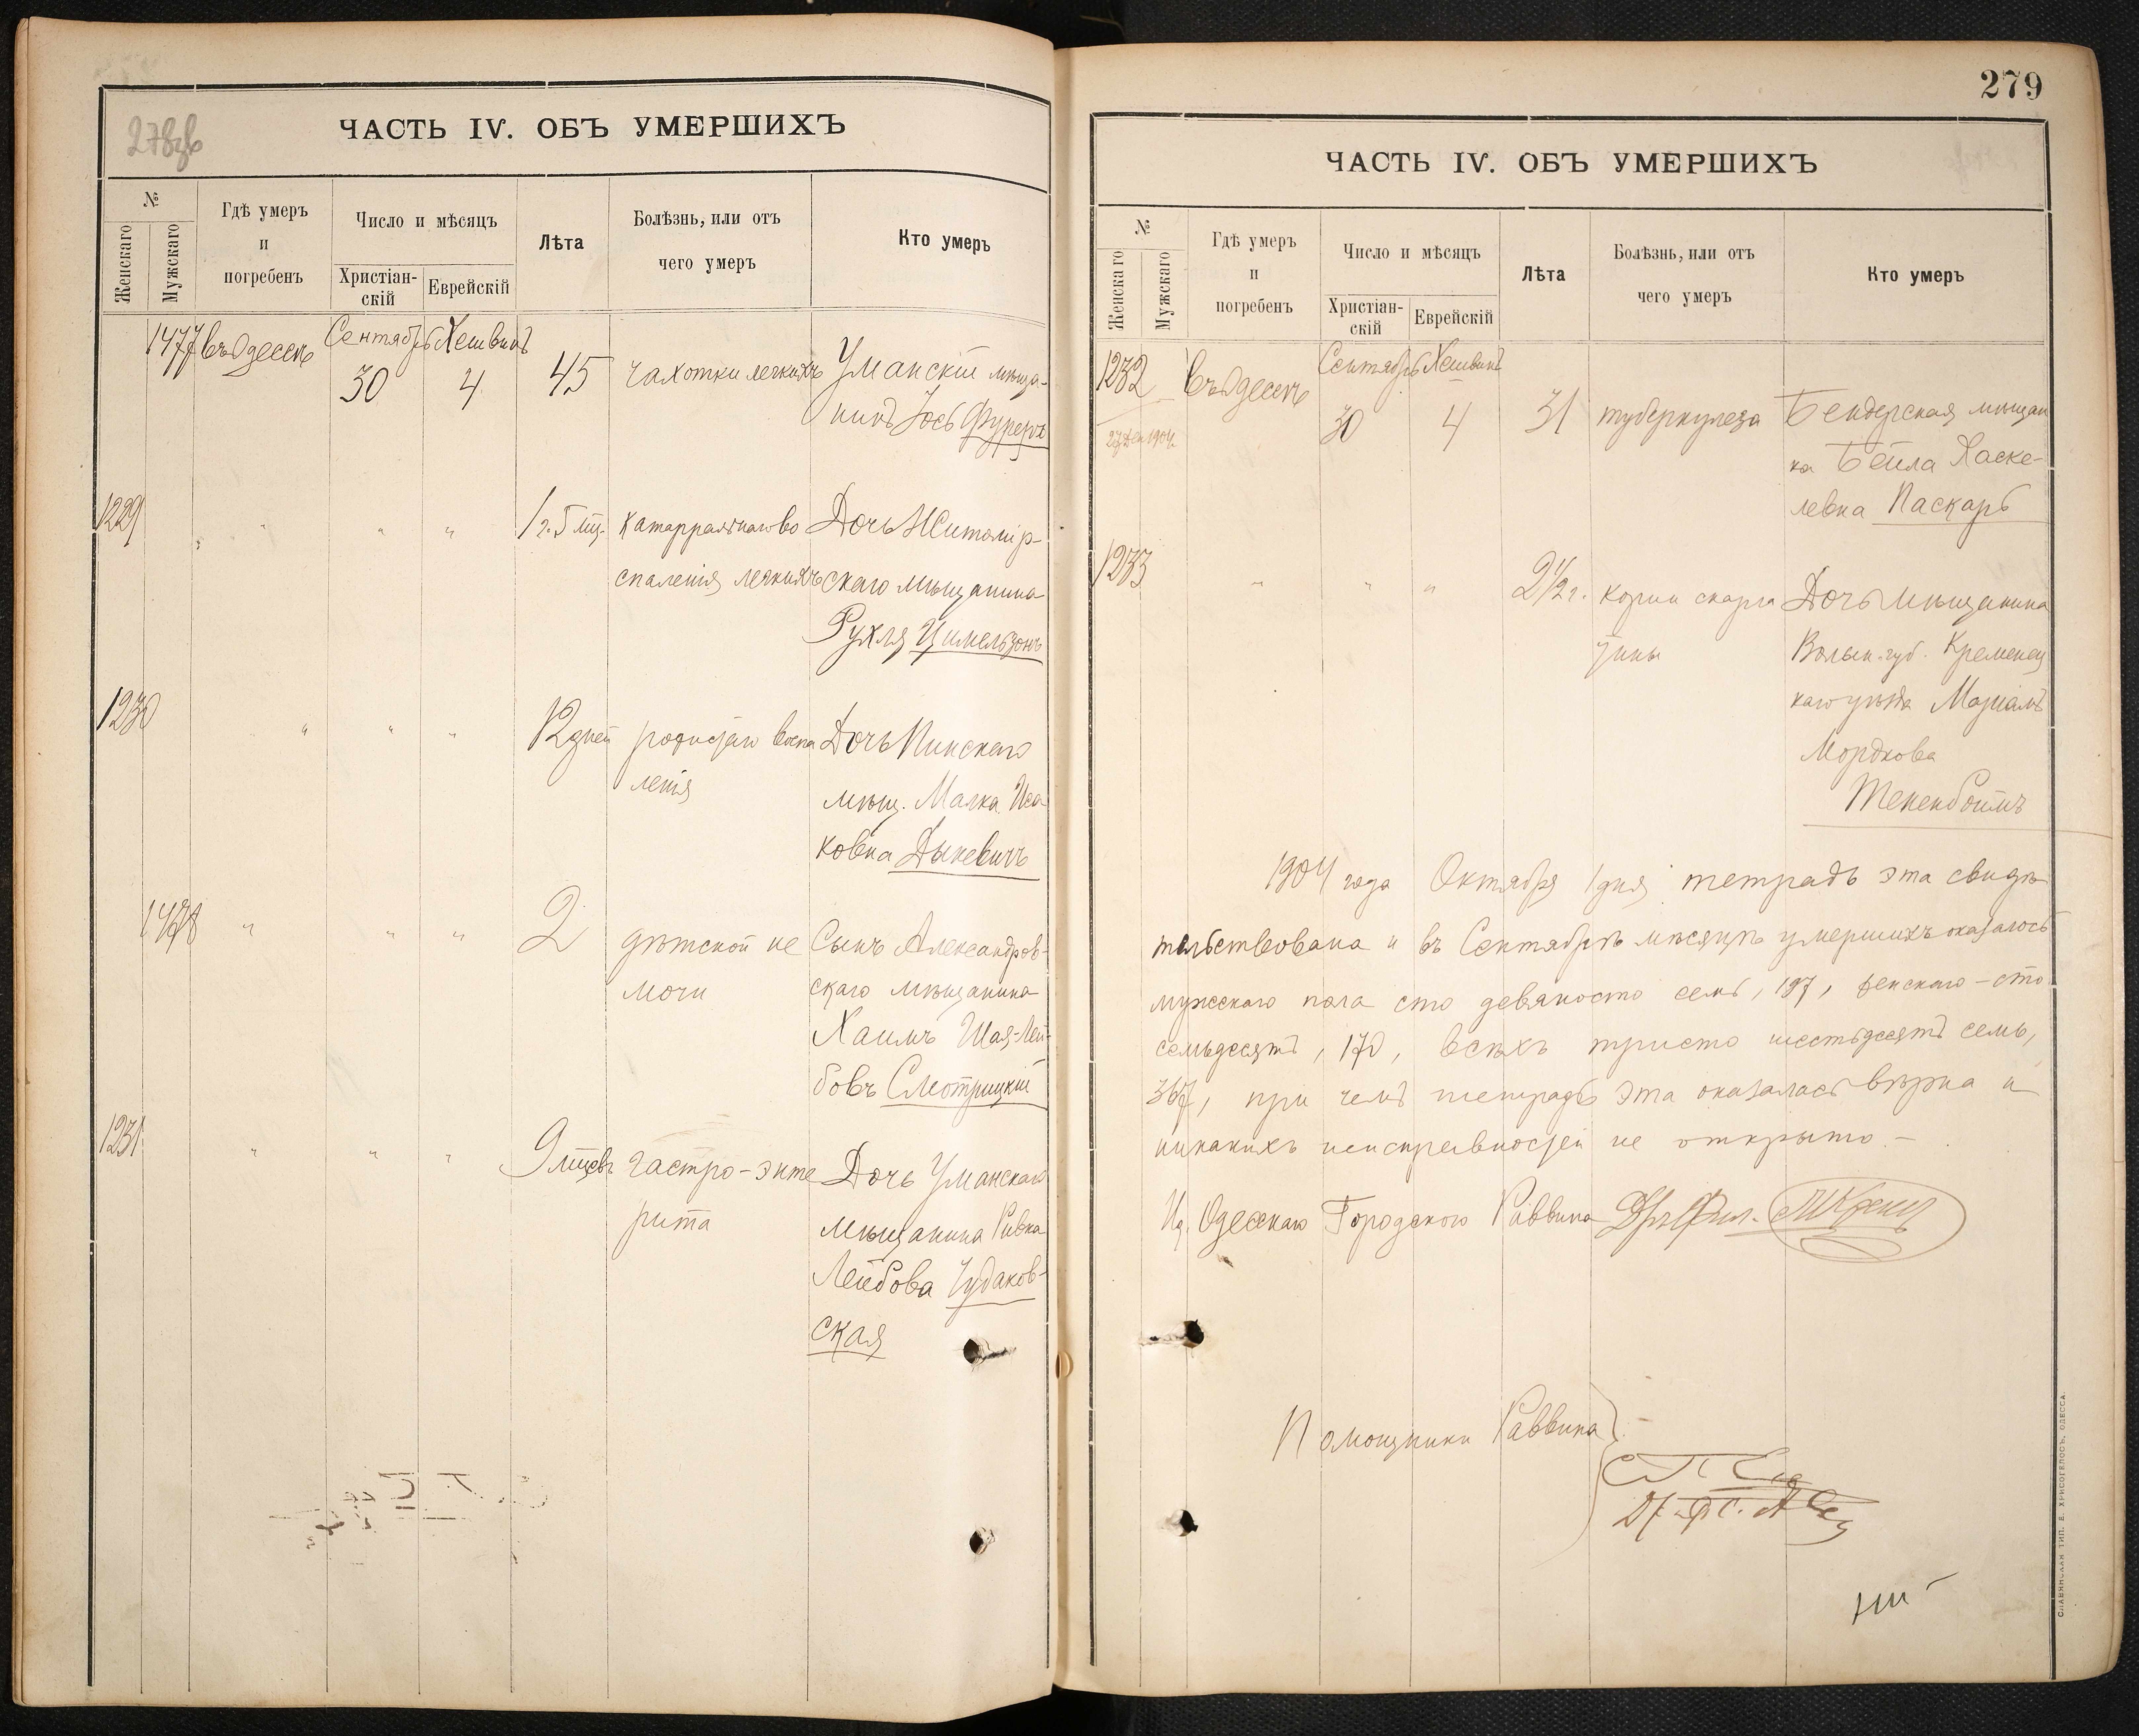 278об
ЧАСТЬ IV. ОБЪ УМЕРШИХЪ
№
Женскаго
Мужскаго
Гдѣ умеръ
и
погребенъ
Число и мѣсяцъ
Христіан-
скій
Еврейскій
Лѣта
Болѣзнь, или отъ
чего умеръ
Кто умеръ
1477 въ Одессѣ Сентябрь Хешвинъ
30 4 45 чахотки легкихъ Уманскій мѣща-
нинъ Іось Фуреръ
1229 " " " 1 г. 5 мѣс. катарральнаго во Дочь Житомір-
спаленія легкихъ скаго мѣщанина
Рухля Цимельзонъ
1230 " " " 12 дней рожистаго воспа Дочь Пинскаго
ленія мѣщ. Малка Иса
ковна Дыкевичъ
1478 " " " 2 дѣтской не Сынъ Александров-
мочи скаго мѣщанина
Хаимъ Шая-Лей-
бовъ Смотрицкій
1231 " " " 9 мѣсцвъ гастро-энте Дочь Уманскаго
рита мѣщанина Ривка
Лейбова Чудаков-
ская
279
ЧАСТЬ IV. ОБЪ УМЕРШИХЪ
№
Женскаго
Мужскаго
Гдѣ умеръ
и
погребенъ
Число и мѣсяцъ
Христіан-
скій
Еврейскій
Лѣта
Болѣзнь, или отъ
чего умеръ
Кто умеръ
1232 въ Одессѣ Сентябрь Хешвинъ
30 4 31 туберкулеза Бендерская мѣщан
ка Бейла Хаске-
левна Паскарь
1233 " " " 2 1/2 г. кори и скарла Дочь мѣщанина
тины Волын. губ. Кременец
каго уѣзда Маріамъ
Мордкова
Тененбоймъ
1904 года Октября 1 дня тетрадь эта свидѣ
тельствована и въ Сентябрѣ мѣсяцѣ умершихъ оказалось
мужескаго пола сто девяносто семь, 197, женскаго – сто
семьдесятъ, 170, всѣхъ триста шестьдесятъ семь,
367, при чемъ тетрадь эта оказалась вѣрна и
никакихъ неисправностей не открыто. –
Одесскаго Городского Раввина
Помощники Раввина
СЛАВЯНСКАЯ ТИП. Е. ХРИСОГЕЛОСЪ. ОДЕССА.